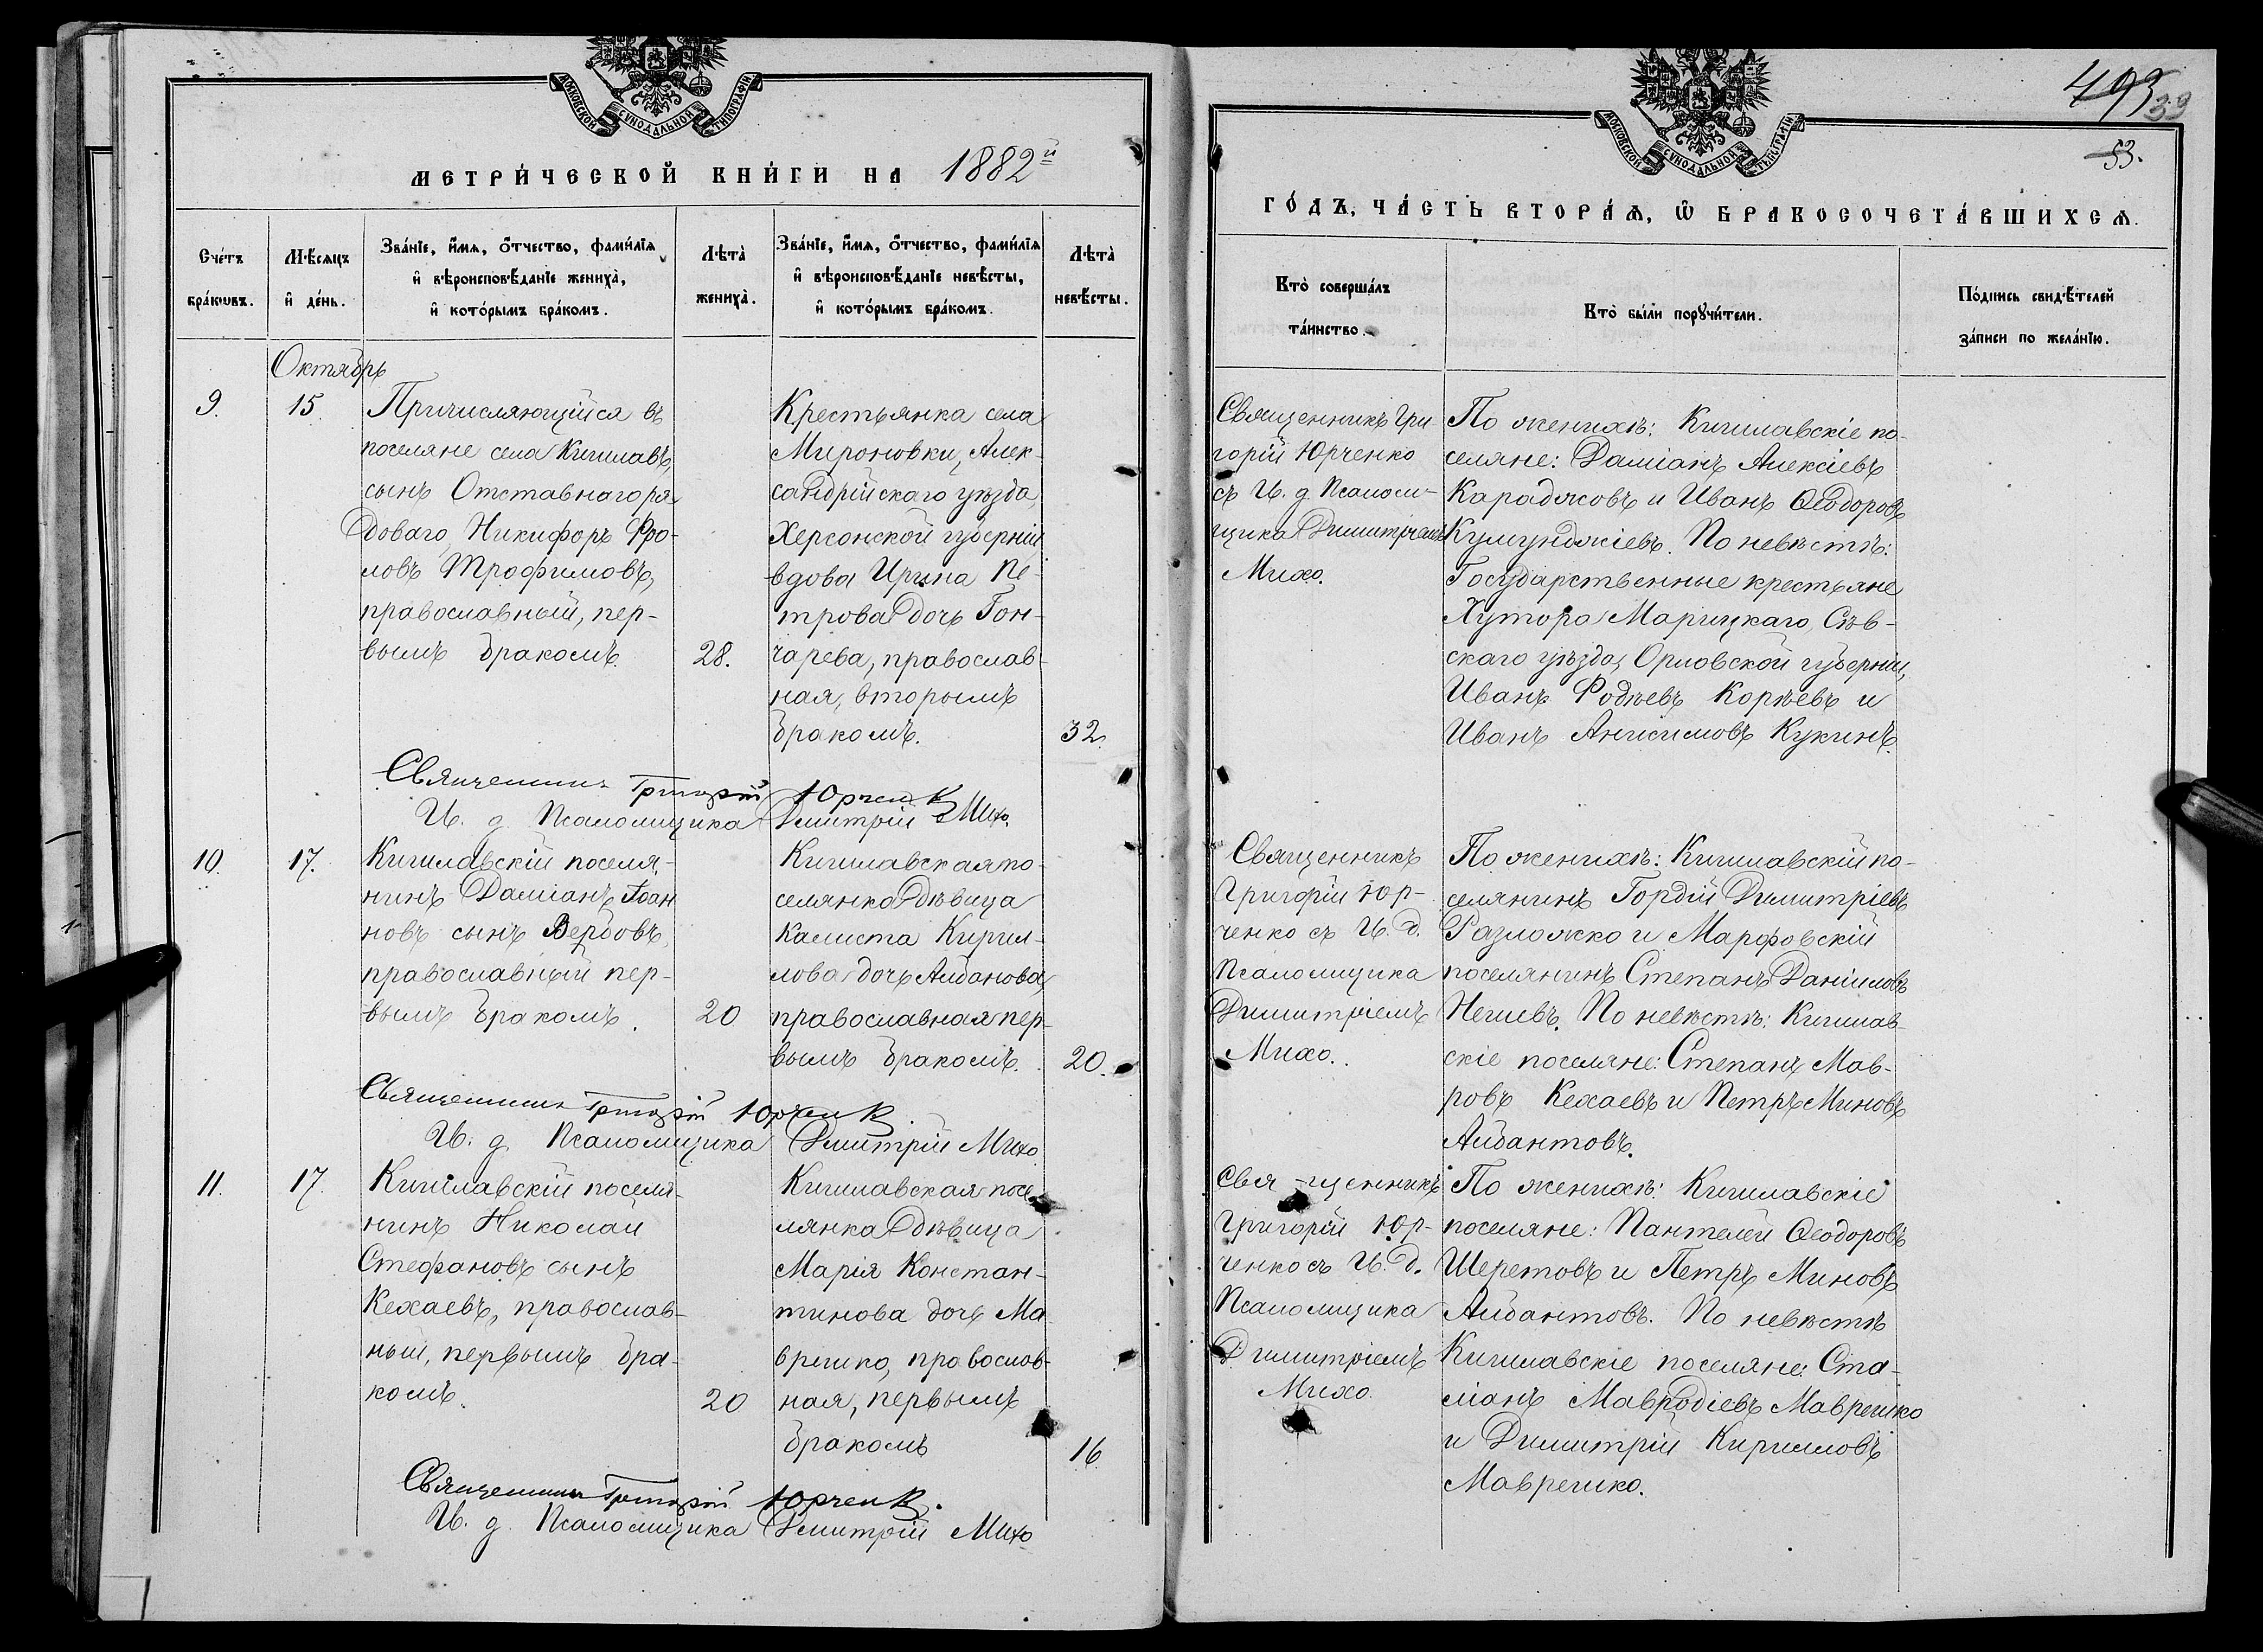 МОСКОВСКОЙ СѴНОДАЛЬНОЙ ТИПОГРАФІИ
МЕТРИ́ЧЕСКОЙ КНИ́ГИ НА 1882й
Сче́тъ бра́кѡвъ.
Мѣ́сяцъ и҆ де́нь.
Зва́нїе, и҆́мѧ, ѻ҆́тчество, фами́лїѧ
и҆ вѣроисповѣ́данїе жениха̀,
и҆ кото́рымъ бра́комъ.
Лѣта̀ жениха̀.
Зва́нїе, и҆́мѧ, ѻ҆́тчество, фами́лїѧ
и҆ вѣроисповѣ́данїе невѣ́сты,
и҆ кото́рымъ бра́комъ.
Лѣта̀ невѣ́сты.
Октябрь
9.
15.
Причисляющійся въ
поселяне села Кишлавъ,
сынъ Отставнаго ря-
доваго, Никифоръ Фро-
ловъ Трофимовъ,
православный, пер-
вымъ бракомъ.
28.
Крестьянка села
Мироновки, Алек-
сандрійскаго уѣзда,
Херсонской губерніи
вдова Ирина Пе-
трова дочь Гон-
чарева, православ-
ная, вторымъ
бракомъ.
32.
Священникъ Григорій Юрченко
И. д. Псаломщика Димитрій Михо.
10.
17.
Кишлавскій поселя-
нинъ Даміанъ Іоан
новъ сынъ Вербовъ,
православный пер-
вымъ бракомъ.
20
Кишлавская по-
селянка дѣвица
Калиста Кирил-
лова дочь Албанова,
православная пер-
вымъ бракомъ.
20.
Священникъ Григорій Юрченко
И. д. Псаломщика Димитрій Михо
11.
17.
Кишлавскій поселя-
нинъ Николай
Стефановъ сынъ
Кехаевъ, православ-
ный, первымъ бра-
комъ.
20
Кишлавская посе-
лянка дѣвица
Марія Констан-
тинова дочь Ма-
врешко, православ-
ная, первымъ
бракомъ
16
Священникъ Григорій Юрченко.
И. д. Псаломщика Димитрій Михо
МОСКОВСКОЙ СѴНОДАЛЬНОЙ ТИПОГРАФІИ
39
53.
ГО́ДЪ, ЧА́СТЬ ВТОРА́Ѧ, Ѡ҆ БРАКОСОЧЕТА́ВШИХСѦ.
Кто̀ соверша́лъ
та́инство.
Кто̀ бы́ли порꙋчи́тели.
По́дпись свидѣ́телей
за́писи по жела́нїю.
Священникъ Гри-
горій Юрченко
съ И. д. Псаломи-
щика Димитріемъ
Михо.
По женихѣ: Кишлавскіе по-
селяне: Даміанъ Алексіевъ
Караджовъ и Иванъ Ѳеодоровъ
Куюунджіевъ. По невѣстѣ:
Государственные крестьяне
Хутора Марицкаго, Сѣв-
скаго уѣзда, Орловской губерніи,
Иванъ Фодѣевъ Корѣевъ и
Иванъ Анисимовъ Кукинъ.
Священникъ
Григорій Юр-
ченко съ И. д.
Псаломщика
Димитріемъ
Михо.
По женихѣ: Кишлавскій по-
селянинъ Гордій Димитріевъ
Разложко и Марфовскій
поселянинъ Степанъ Даніиловъ
Нешевъ. По невѣстѣ: Кишлав-
скіе поселяне: Степанъ Мав-
ровъ Кехаевъ и Петръ Миновъ
Айвантовъ.
Свя-щенникъ
Григорій Юр-
ченко съ И. д.
Псаломщика
Димитріемъ
Михо.
По женихѣ: Кишлавскіе
поселяне: Пантелей Ѳеодоровъ
Шеретовъ и Петръ Миновъ
Айвантовъ. По невѣстѣ
Кишлавскіе поселяне: Ста-
міанъ Мавродіевъ Маврешко
и Димитрій Кирилловъ
Маврешко.